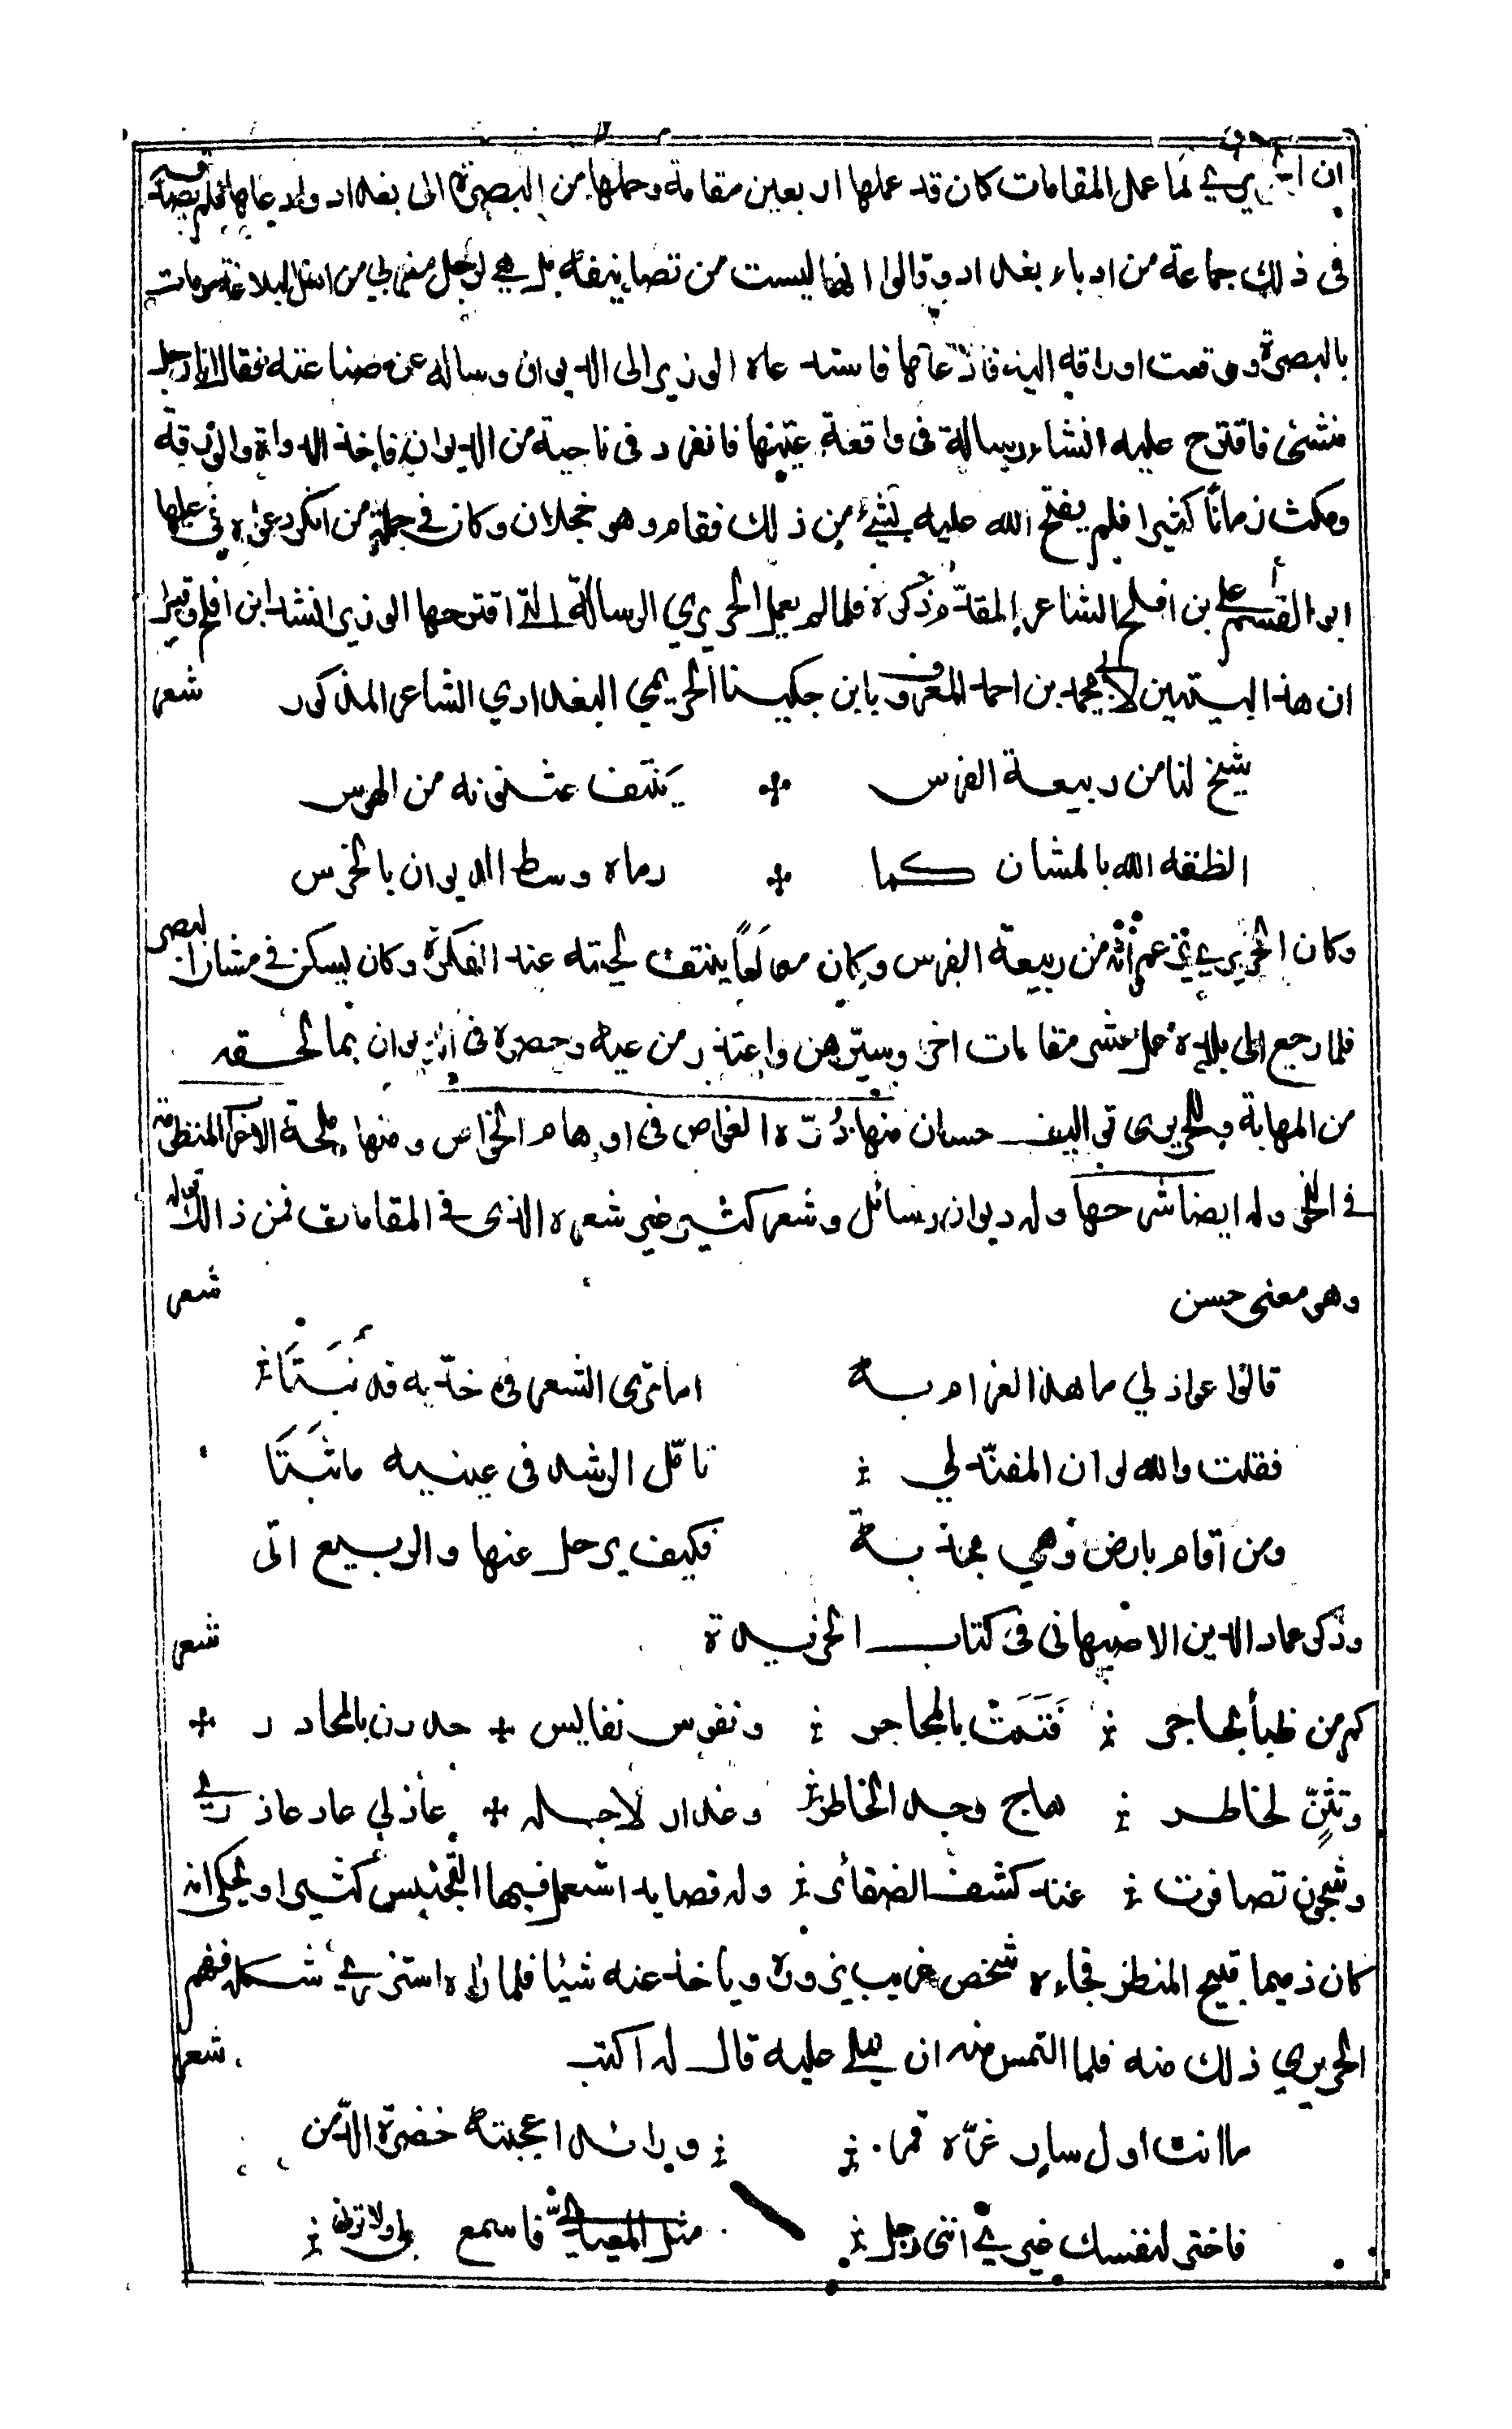 ان الحريري لما عمل المقامات كان قد عملها اربعين مقامة وحملها من البصرة الى بغداد وادعاها فلم يصدقه
فى ذلك جماعة من ادباء بغداد وقالوا انها ليست من تصانيفه بل هي لرجل مغربي من اهل البلاغة ومات
بالبصرة ووقعت اوراقه اليه فادّعاها فاستدعاه الوزير الى الديوان وساله عن صناعته فقال انا رجل
منشئ فاقترح عليه انشاء رسالة فى واقعة عيّنها فانفرد فى ناحية من الديوان فاخذ الدواة والورقة
ومكث زمانًا كثيرا فلم يفتح الله عليه بشئ من ذلك فقام وهو خجلان وكان في جملة من انكر دعواه في عملها
ابو القسم علي بن افلح الشاعر المقدّم ذكره فلما لم يعمل الحريري الرسالة التي اقترحها الوزير انشد ابن افلح وقيل
ان هذا البيتين لابي محمد بن احمد المعروف بابن جكينا الحريمي البغدادي الشاعر المذكور شعر
شيخ لنا من ربيعة الفرس ينتف عثنونه من الهوس
انطقه الله بالمشان كما رماه وسط الديوان بالخرس
وكان الحريري يزعم انّه من ربيعة الفرس وكان مولعًا ينتف لحيته عند الفكرة وكان يسكن في مشان البصرة
فلما رجع الى بلده عمل عشر مقامات اخر وسيّرهن واعتذر من عيه وحصره فى الديوان بما لحقه
من المهابة وللحريرى تواليف حسان منها درّة الغواص فى اوهام الخواص ومنها ملحة الاعراب المنظومة
في النحو وله ايضا شرحها وله ديوان رسائل وشعر كثير غير شعره الذى في المقامات فمن ذالك قوله
وهو معنى حسن شعر
قالوا عواذلي ما هذا الغرام به اما ترى الشعر فى خدّيه قد نَبَتَا
فقلت والله لو ان المفنّد لي تامّل الرشد فى عينيه ما ثَبَتَا
ومن اقام بارض وهي مجدبة فكيف يرحل عنها والربيع اتى
وذكر عماد الدين الاصبهانى فى كتاب الخريدة شعر
كم من ظبأ بحاجر فَتَنَتْ بالمحاجر ونفوس نفايس حدرن بالمحادر
وتثنٍّ لخاطر هاج وجد الخاطر وعذار لاجله عاذلي عاد عاذري
وشجون تضافرت عند كشف الضفائر وله قصايد استعمل فيها التجنيس كثيرا ويحكى انه
كان ذميما قبيح المنظر فجاءه شخص غريب يزوره وياخذ عنه شيئا فلما راه استزرى شكله ففهم
الحريري ذلك منه فلما التمس منه ان يملي عليه قال له اكتب شعر
ما انت اول سار غرّه قمر ورائد اعجبته خضرة الدّمن
فاختر لنفسك غيري انني رجل مثل المعيديّ فاسمع بي ولا ترني